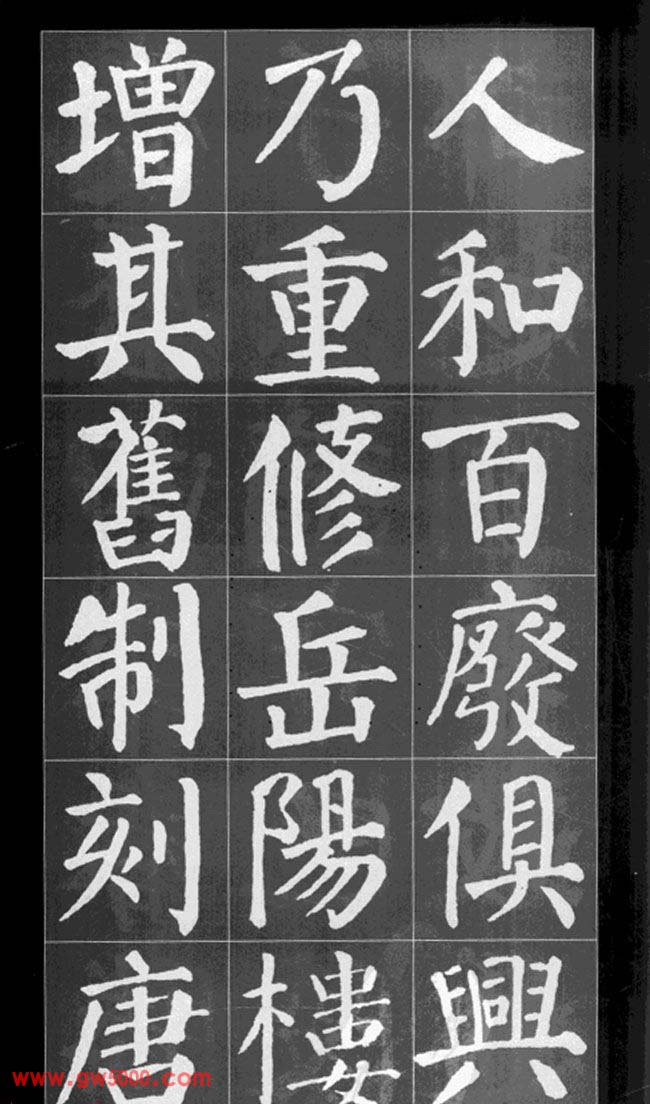 人和百廢俱興
乃重修岳陽樓
增其舊制刻唐
www.gw5000.com